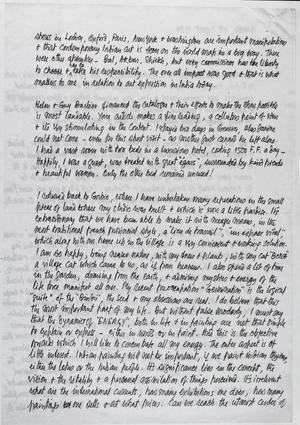 shows in London, Oxford, Paris, New York & Washington are important manifestations
& that Contemporary Indian art is seen on the world map in a big way. There
were other But, Akbar, but every commissioner has the liberty
to choose & take his responsibility. The one all impact was good & that is what
matters to me in relation to art expression in India today.
Helen & Guy financed the catalogue & their efforts to make the show possible
is most laudable. Your article makes a fine reading, a collector's point of view
& its very stimulating in the context. I enjoyed two days in Geneva, also Janine
could not come - even for this short visit - as another food cannot be left alone.
I had a room with two beds in a luxurious hotel, costing 1520 F.F. a day -
Happily I was a guest, was treated with great "égards", surrounded by kind friends
& beautiful women. Only the other bed remained unused!
I returned back to Gorbio, where I have undertaken many reparations in the small
piece of land where my studio was built & which is now a little paradise. Its
extraordinary that we have been able to make it with meagre means, in the
most traditional grands provincial style, a "lieu de travail", "un espace vital",
which along with our home up in the village is a very convenient & working solution.
I am so happy, being nature now, with my trees & plants, with my cat "Bella"
a village cat which came to us, as if from heaven. I also spend a lot of time
in the garden, drawing from the earth, & drawing mystère & energy of the
life force manifest all over. My recent preoccupation "Germination" is the logical
"suite" of the "Bindu", the seed & my obsessions are real. I do believe that this
the most important part of my life. But without false modesty, I must say
that the dynamics of "ENERGY", both in life & in painting are not that simple
to explain or express - either in words or in paint. And this is the objective
process which I will like to concentrate all my energy. The outer aspect is of
little interest. Indian painting will not be important, if we paint Indian themes
within the labor or the Indian people. Its significance lies in the concept, the
vision & the vitality & a personal assimilation of things perceived. Its irrelevant
what are the international currents, how many exhibitions one does, how many
paintings one sells & at what prices. Can we reach the utmost center of